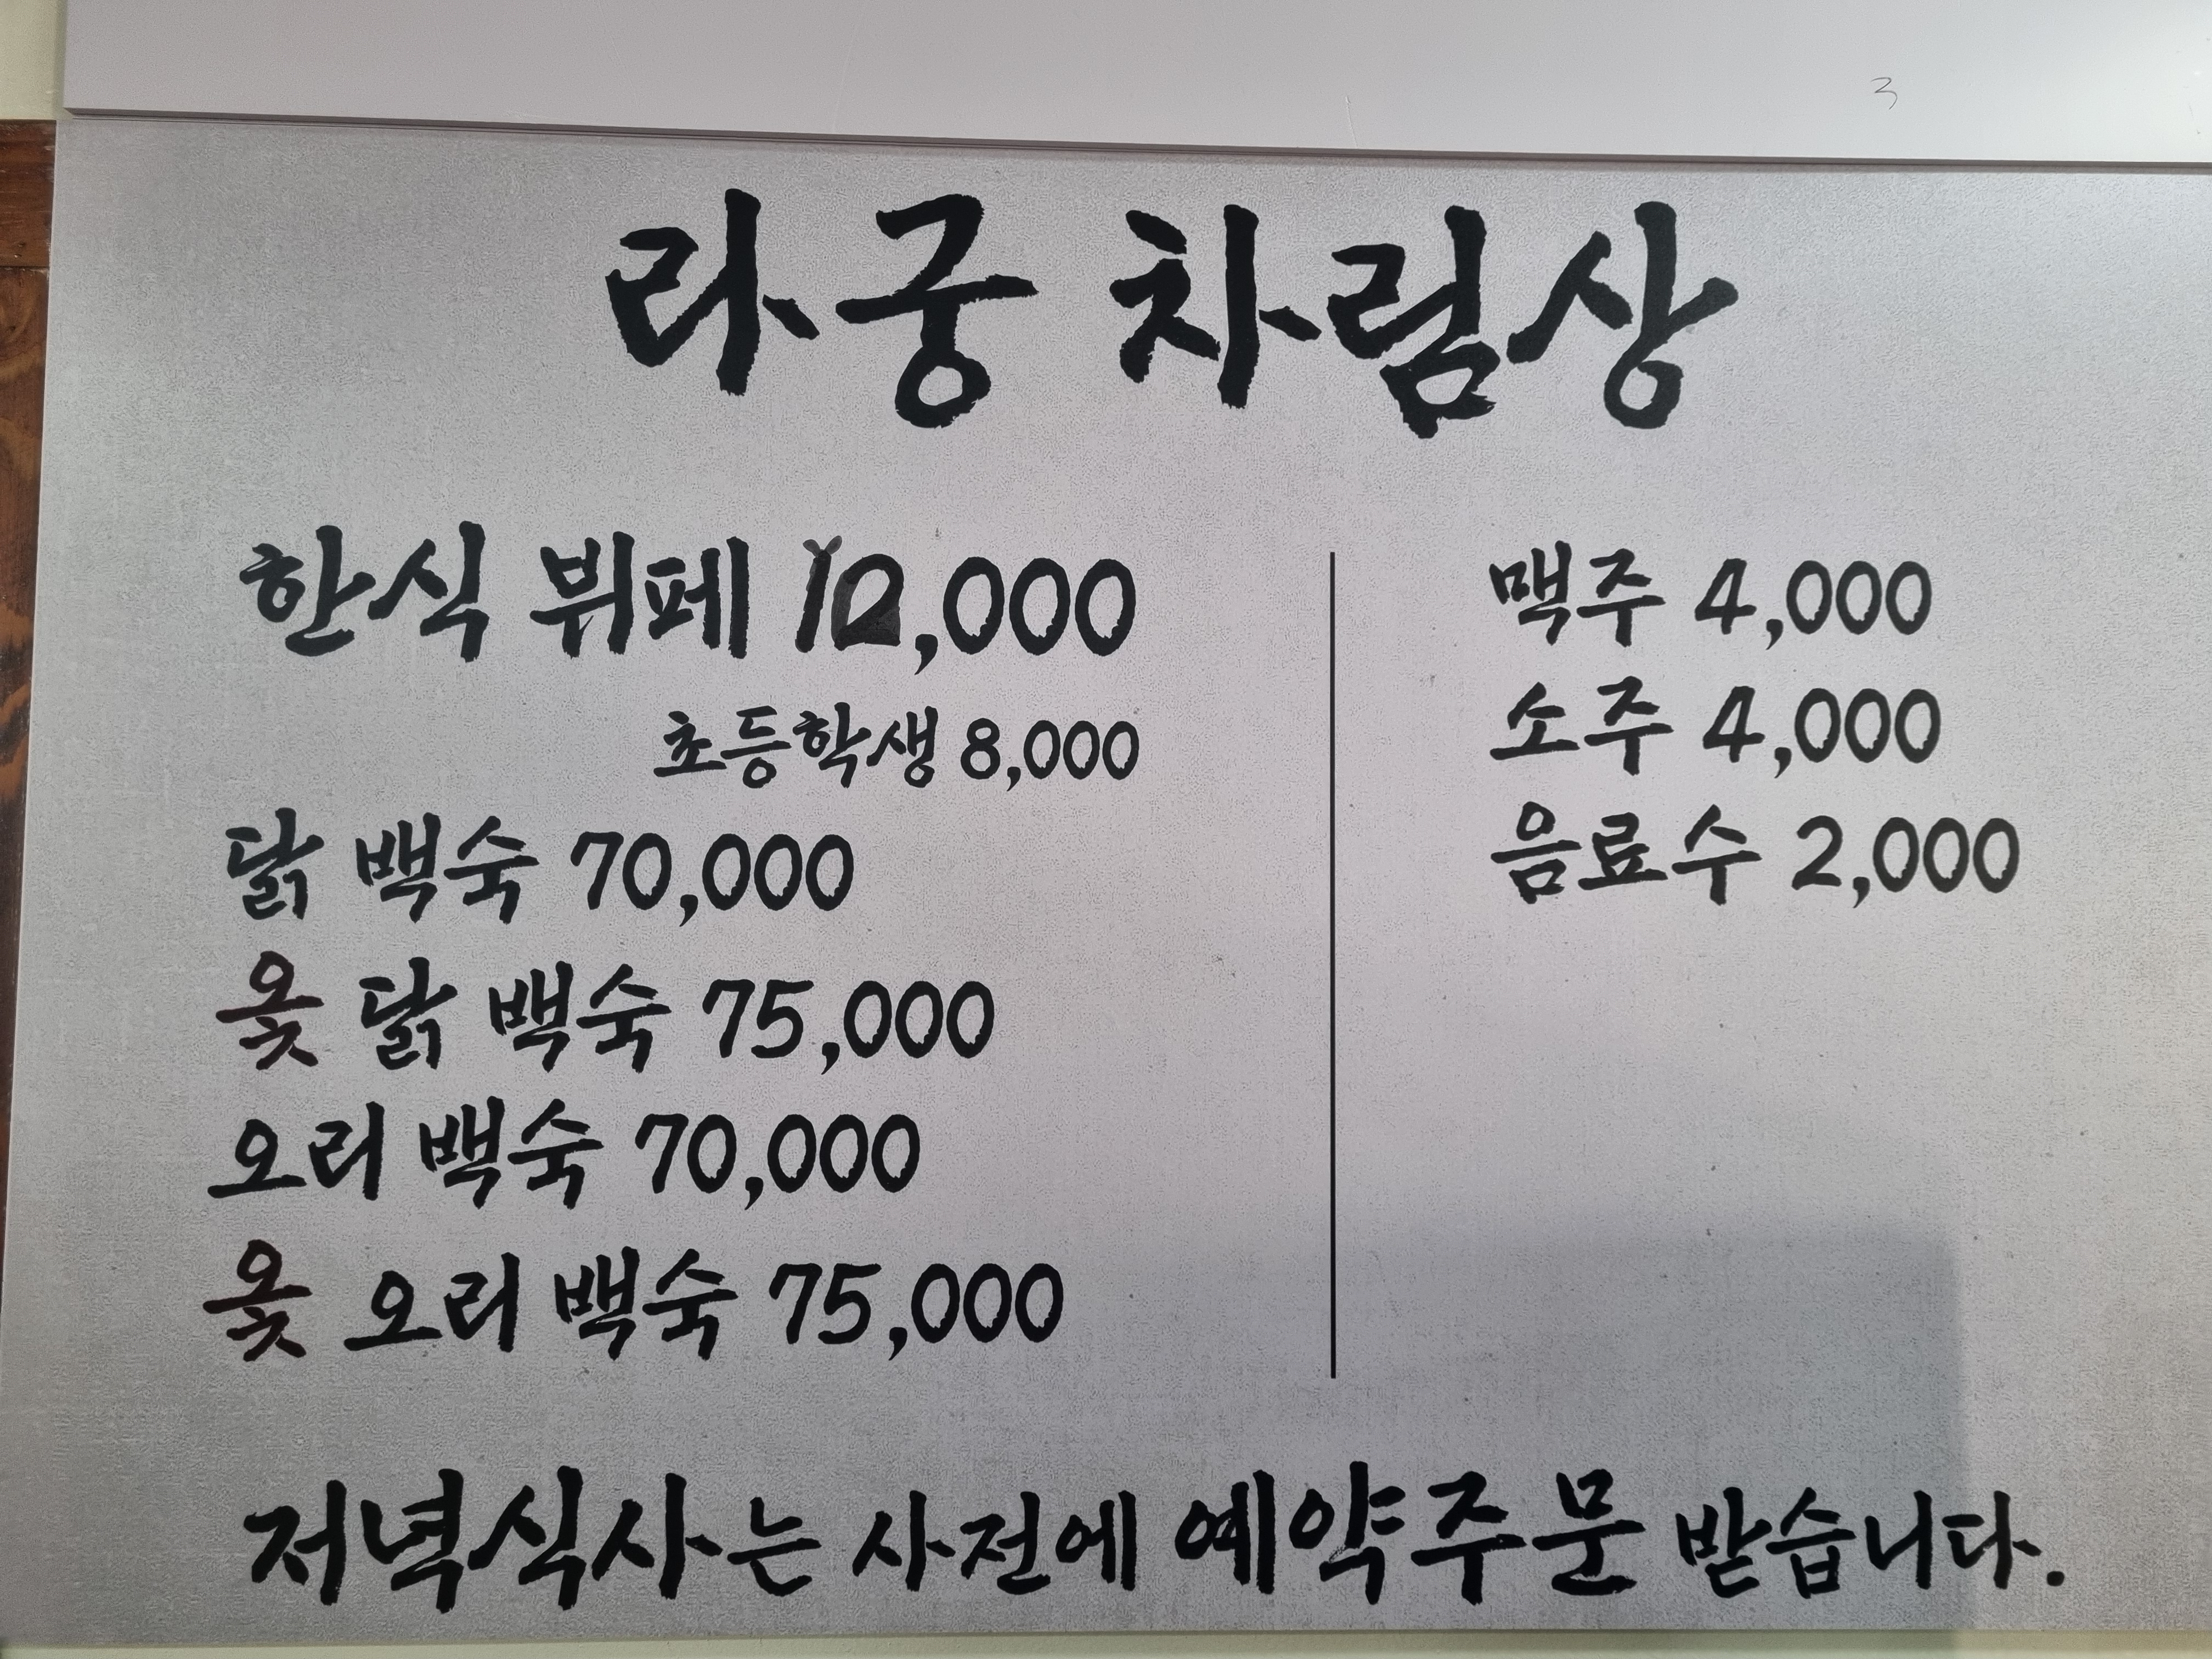 라궁 차림상
한식 뷔페 12,000
초등학생 8,000
닭 백숙 70,000
옻 닭 백숙 75,000
오리 백숙 70,000
옻 오리 백숙 75,000
맥주 4,000
소주 4,000
음료수 2,000
저녁식사는 사전에 예약주문 받습니다.